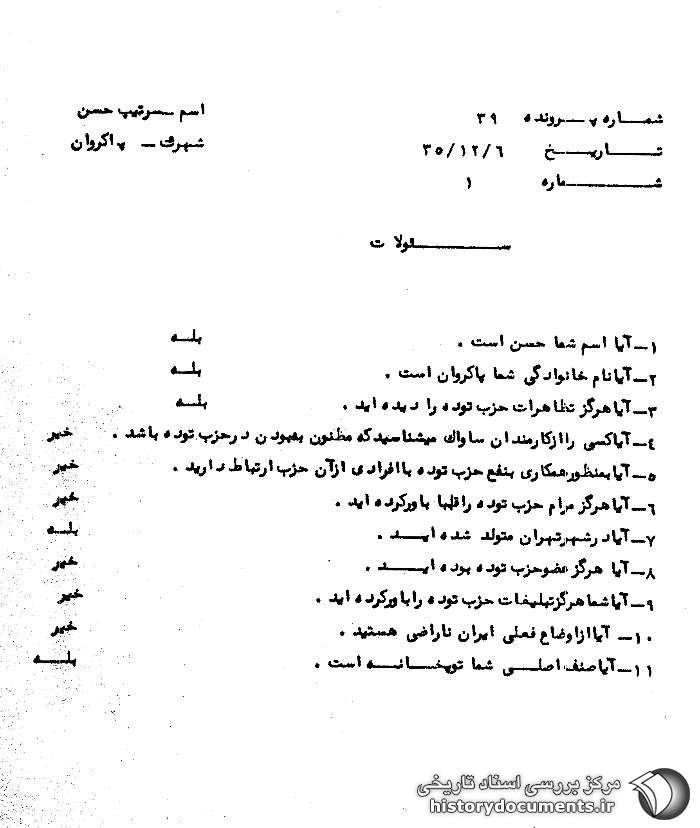 شماره پرونده ۳۹
تاریخ ۳۵/۱۲/۶
شماره ۱
اسم سرتیپ حسن
شهرت - پاکروان
سئوالات
۱-آیا اسم شما حسن است . بله
۲-آیانام خانوادگی شما پاکروان است . بله
۳-آیاهرگز تظاهرات حزب توده را دیده اید . بله
۴-آیاکسی رااز کارمندان ساواک میشناسیدکه مظنون به بودن درحزب توده باشد . خیر
۵-آیابمنظورهمکاری بنفع حزب توده با افرادی ازآن حزب ارتباط دارید . خیر
۶-آیاهرگز مرام حزب توده راقلبا باورکرده اید . خیر
۷-آیادرشهرتهران متولد شده اید . بله
۸-آیا هرگز عضوحزب توده بوده اید . خیر
۹-آیاشماهرگزتبلیغات حزب توده راباورکرده اید . خیر
۱۰- آیاازاوضاع فعلی ایران ناراضی هستید . خیر
۱۱-آیاصنف اصلی شما توپخانه است . بله
مرکز بررسی اسناد تاریخی
historydocuments.ir